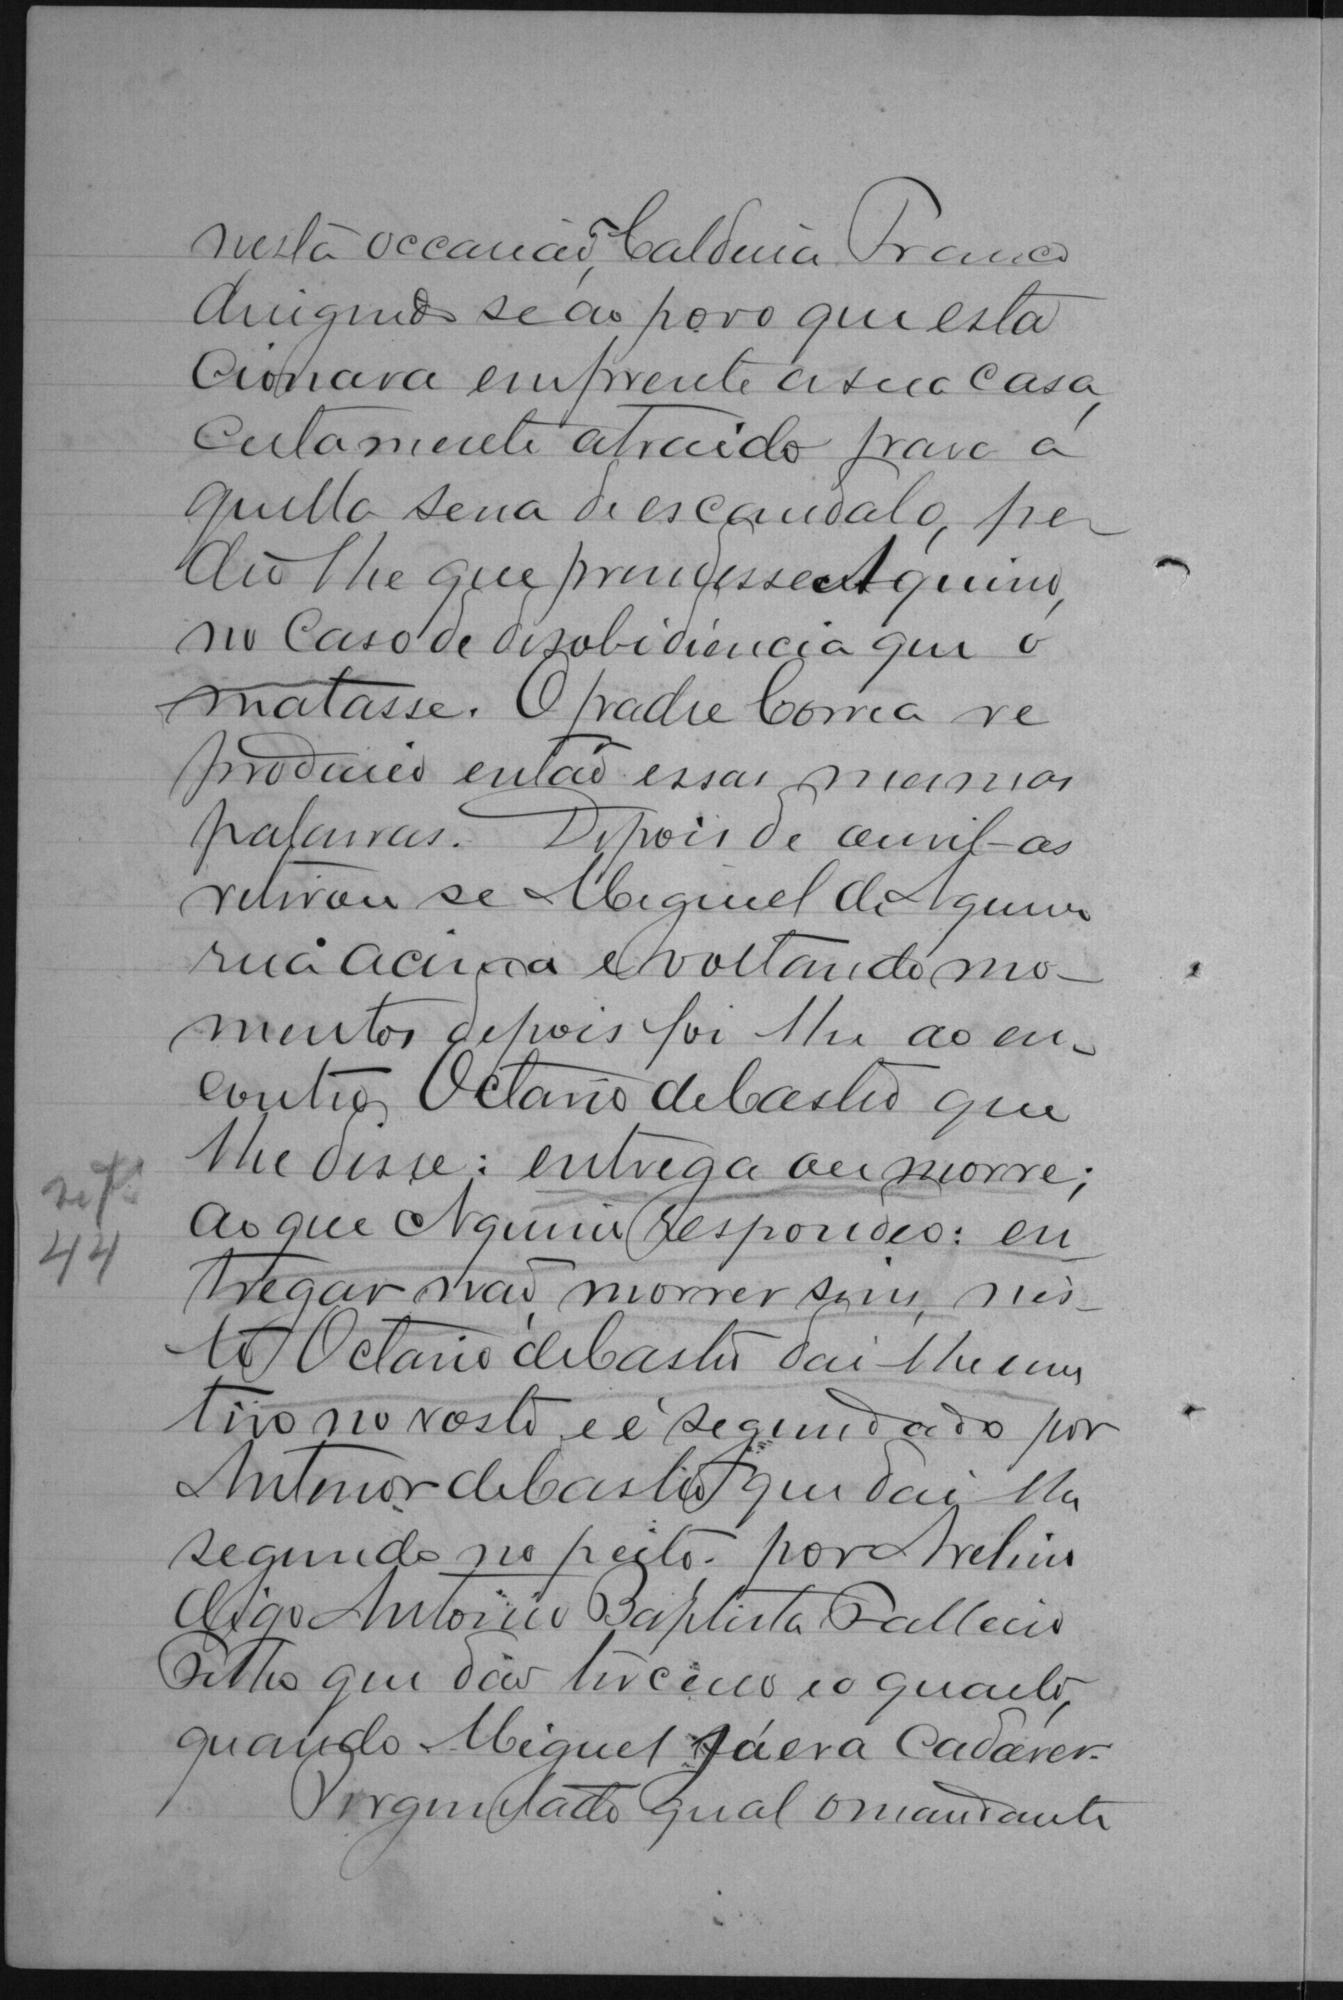 nesta occasião, Caldeira Franco
dirigindo se ao povo que esta
cionava em frente a sua casa,
certamente atraido para a
quella sena de escandalo, pe
dio lhe que prendesse Aquino,
no caso de desobidiencia que o
matasse. O padre Correa re
produsio então essas mesmas
palavras. Depois de ouvil-as
retirou se Miguel de Aquino
rua acima e voltando mo-
mentos depois foi lhe ao en-
contro Octavio de Castro que
lhe disse: entrega ou morre;
ao que Aquino respondeo: en
tregar não, morrer sim, nis-
to Octavio de Castro dai lhe um
tiro no rosto, e é segundado por
Antenor de Castro que dai lhe
segundo no peito. por Avelino
digo Antonio Baptista Palleiro
Filho que dão terceiro e o quarto,
quando Miguel já era cadaver.
Perguntado qual o mandante
44